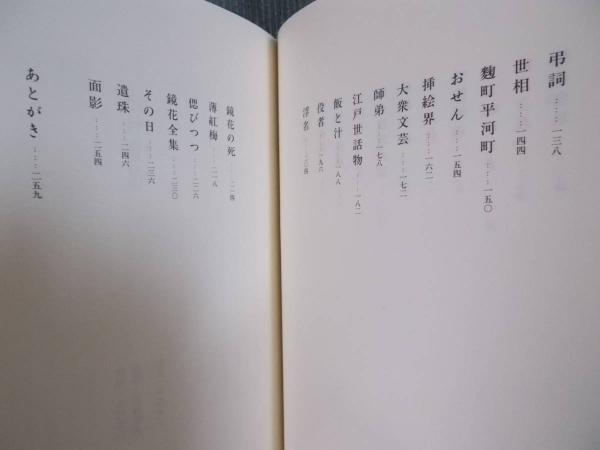 弔詞……一三八
世相……一四四
麴町平河町……一五〇
おせん……一五四
挿絵界……一六二
大衆文芸……一七二
師弟……一七八
江戸世話物……一八二
飯と汁……一八八
役者……一九六
浮名……二〇四
鏡花の死……二一四
薄紅梅……二一八
偲びつつ……二二六
鏡花全集……二三〇
その日……二三六
遺珠……二四六
面影……二五四
あとがき……二五九